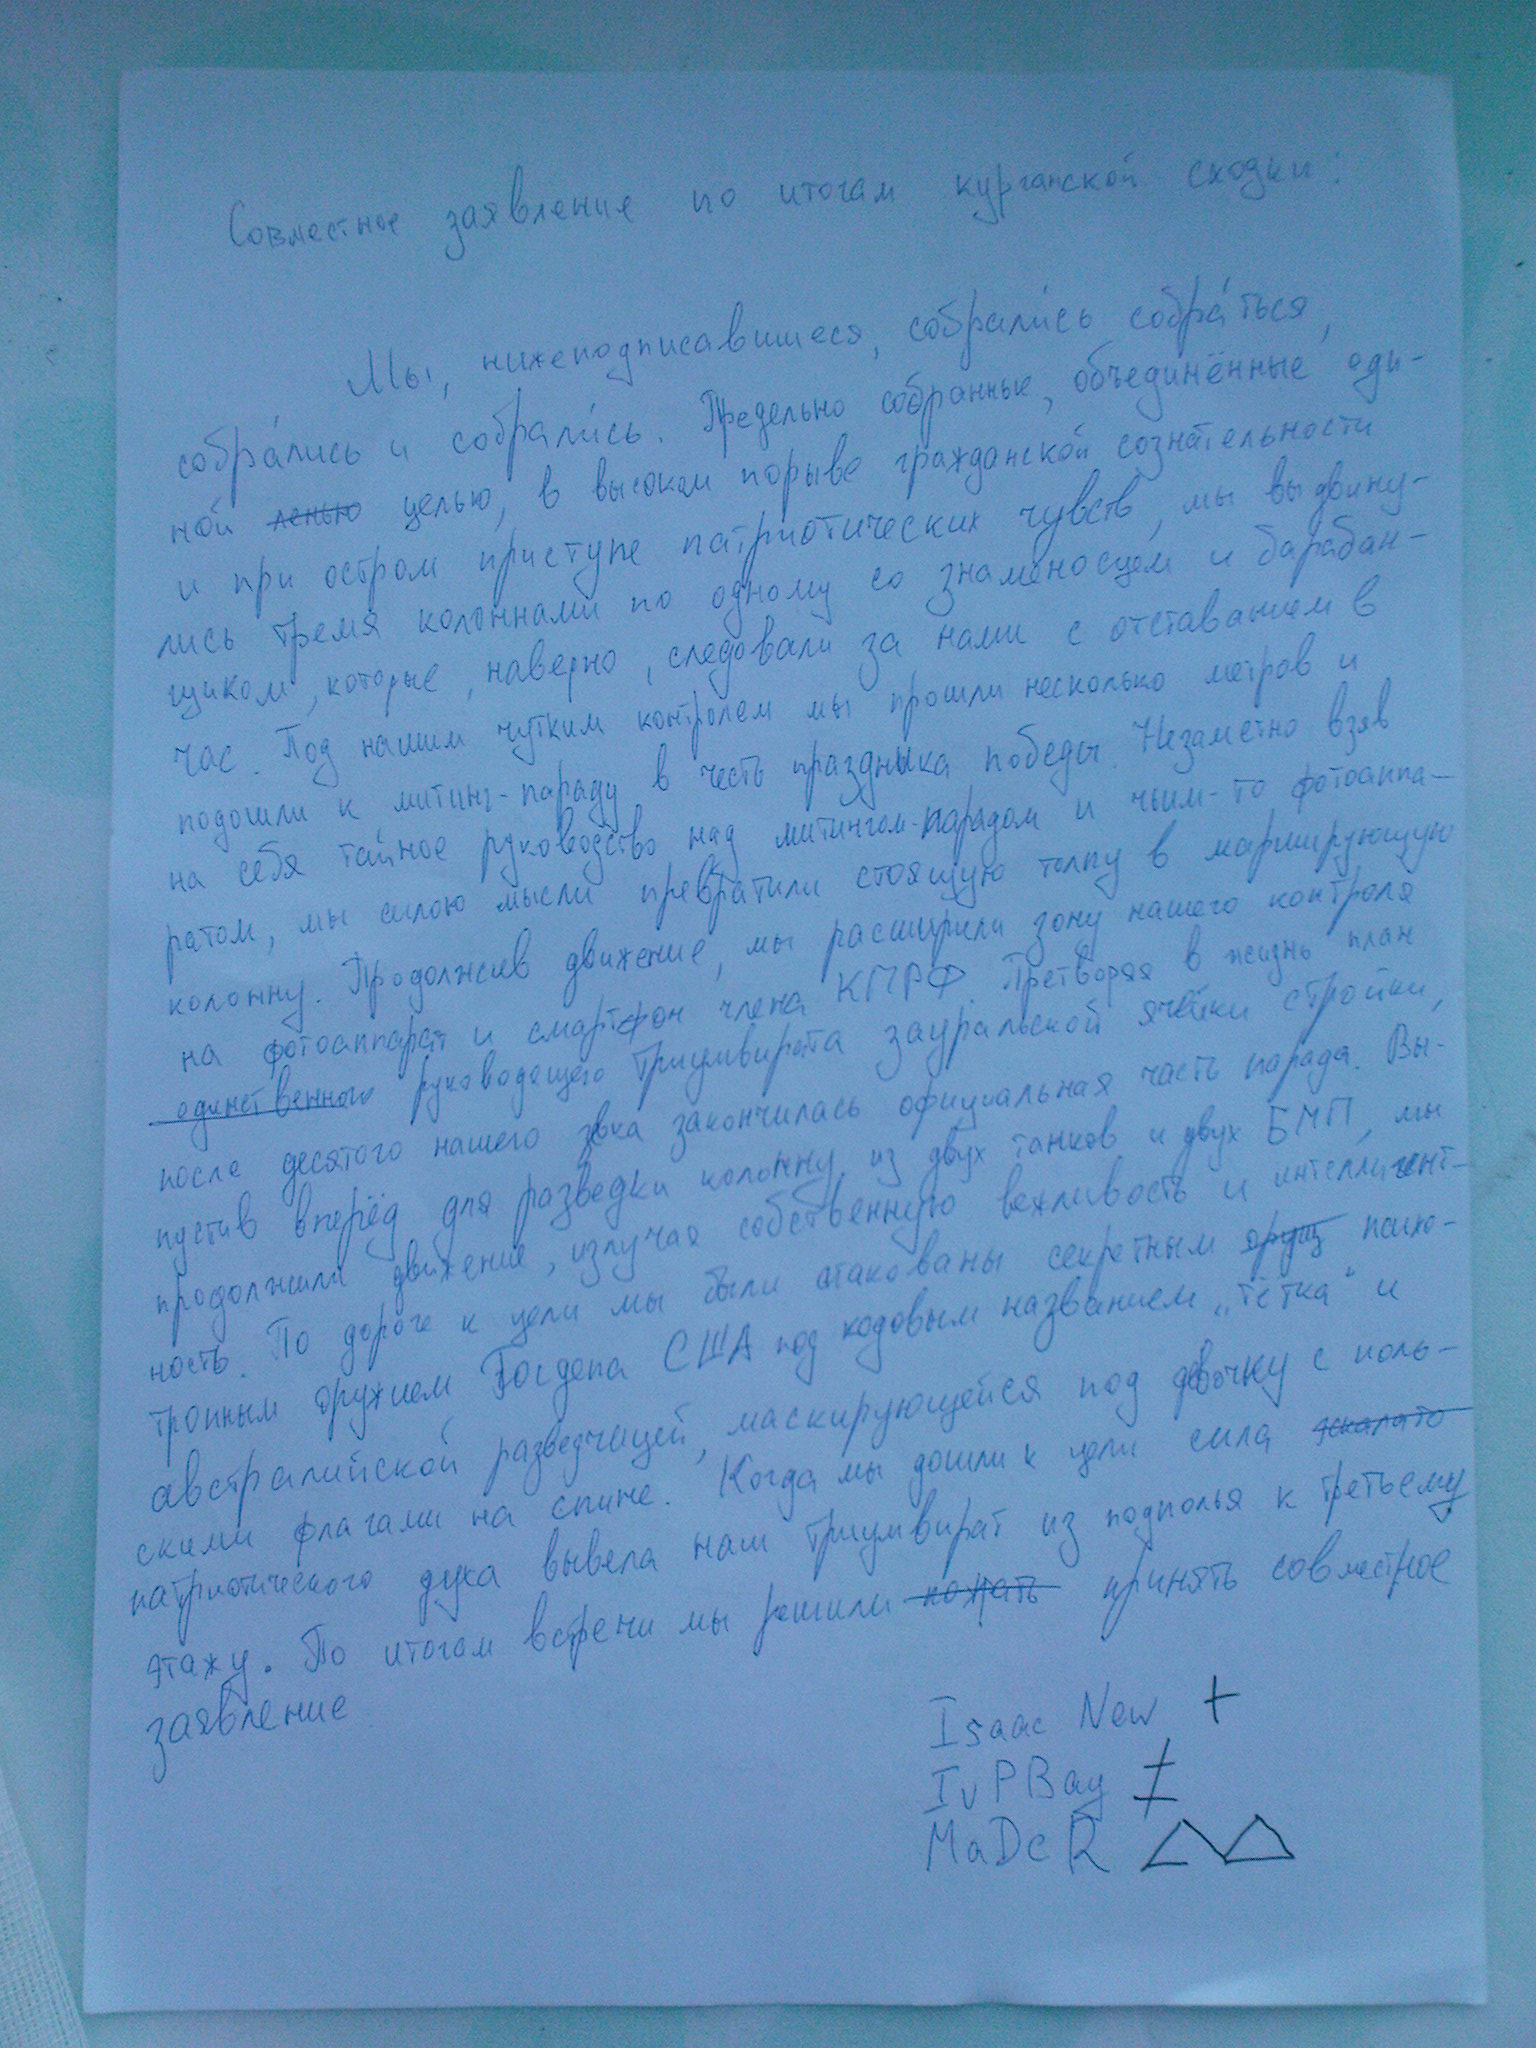 Совместное заявление по итогам курганской сходки:
Мы, нижеподписавшиеся, собрали́сь собра́ться,
собра́лись и собрали́сь. Предельно собранные, объединённые оди-
ной ленью целью, в высоком порыве гражданской сознательности
и при остром приступе патриотических чувств, мы выдвину-
лись тремя колоннами по одному со знаменосцем и барабан-
щиком, которые, наверно, следовали за нами с отставанием в
час. Под нашим чутким контролем мы прошли несколько метров и
подошли к митинг-параду в честь праздника победы. Незаметно взяв
на себя тайное руководство над митингом-парадом и чьим-то фотоаппа-
ратом, мы силою мысли превратили стоящую толпу в марширующую
колонну. Продолжив движение, мы расширили зону нашего контроля
на фотоаппарат и смартфон члена КПРФ. Претворяя в жизнь план
единственного руководящего триумвирата зауральской ячейки стройки,
после десятого нашего звка закончилась официальная часть парада. Вы-
пустив вперёд для разведки колонну из двух танков и двух БМП, мы
продолжили движение, излучая собственную вежливость и интеллигент-
ность. По дороге к цели мы были атакованы секретным оруж психо-
тропным оружием Госдепа США под кодовым названием „тётка" и
австралийской разведчицей, маскирующейся под девочку с поль-
скими флагами на спине. Когда мы дошли к цели сила
патриотического духа вывела наш триумвират из подполья к третьему
этажу. По итогам встречи мы решили принять совместное
заявление
Isaac New +
IvPBay
MaDeR